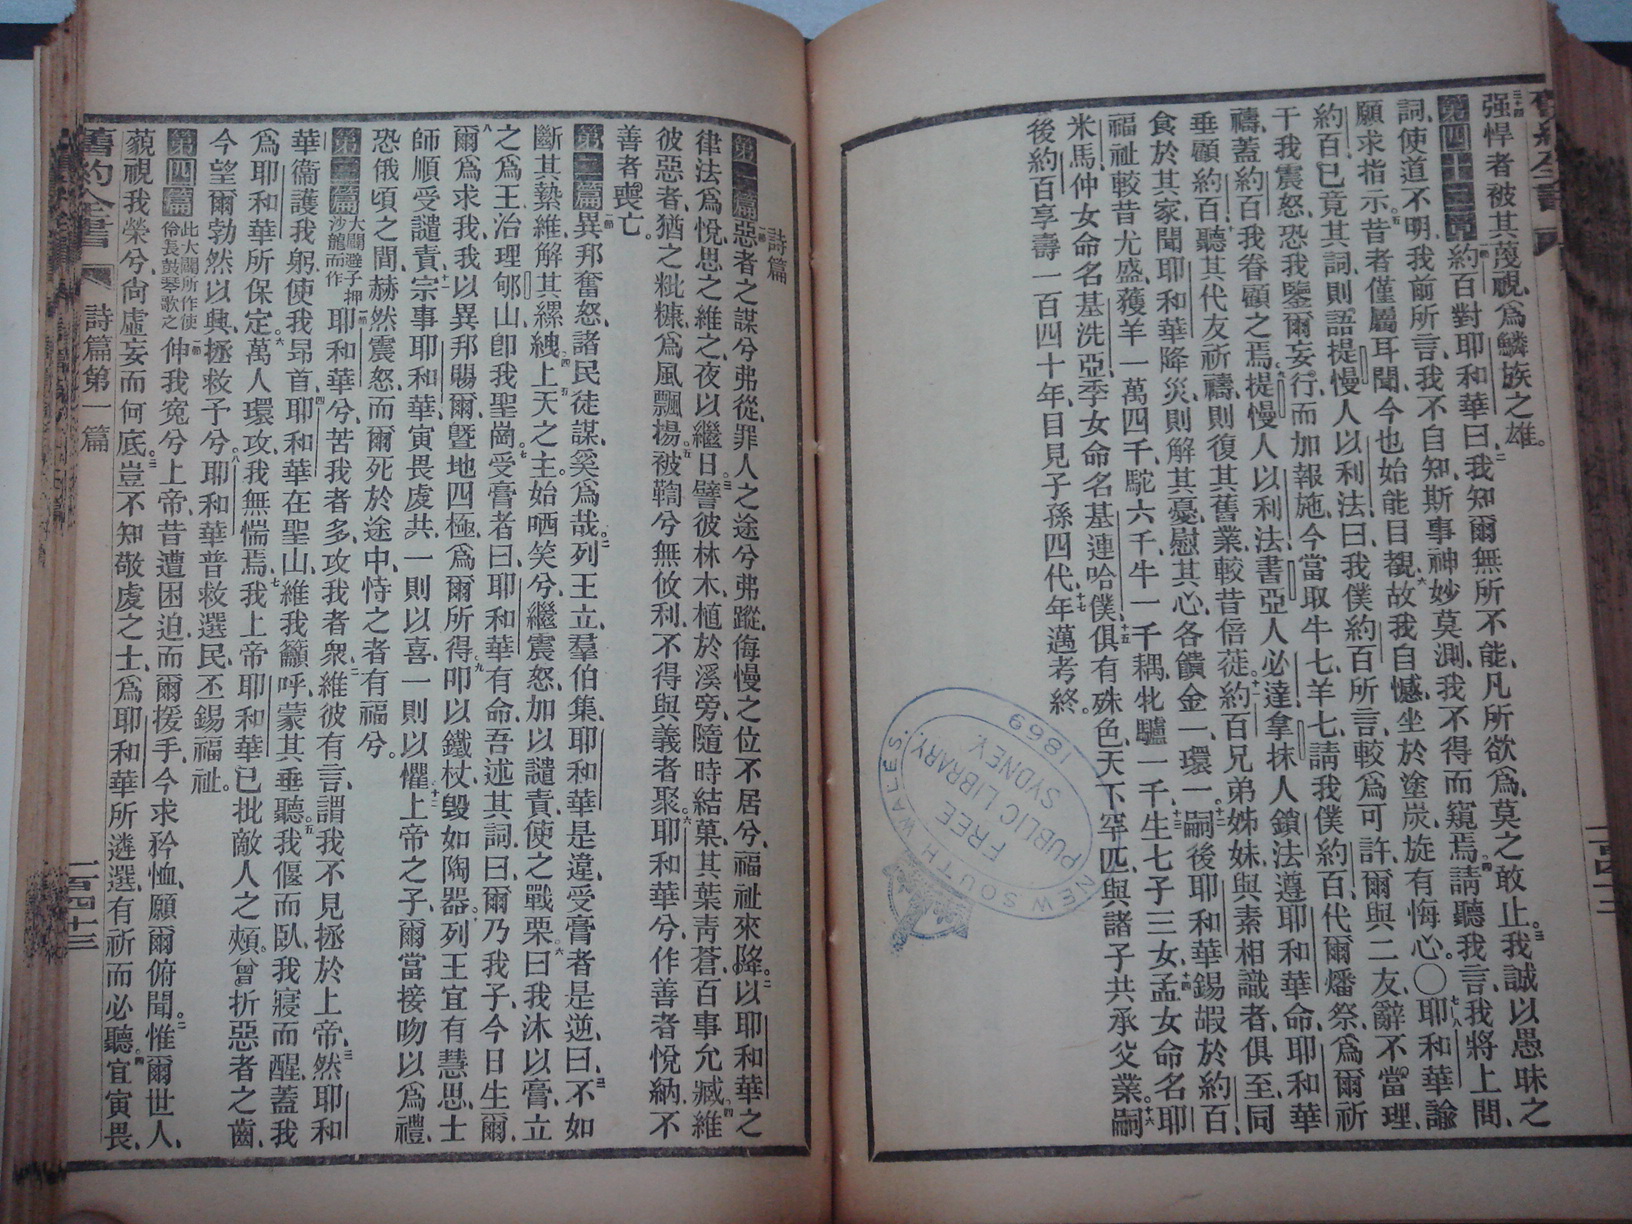 强悍者被其蔑視、爲鱗族之雄。
第四十二章約百對耶和華曰、我知爾無所不能、凡所欲爲、莫之敢止。我誠以愚昧之
詞、使道不明、我前所言、我不自知、斯事神妙莫測、我不得而窺焉。請聽我言、我將上問、
願求指示。昔者僅屬耳聞、今也始能目覩、故我自憾、坐於塗炭、旋有悔心。〇耶和華諭
約百已竟其詞、則語提慢人以利法曰、我僕約百所言、較爲可許、爾與二友、辭不當理、
干我震怒、恐我鑒爾妄行、而加報施、今當取牛七、羊七、請我僕約百、代爾燔祭、爲爾祈
禱、蓋約百我眷顧之焉。提慢人以利法、書亞人必達、拿抹人鎖法、遵耶和華命、耶和華
垂顧約百、聽其代友祈禱、則復其舊業、較昔倍蓰。約百兄弟姊妹、與素相識者、俱至、同
食於其家、聞耶和華降災、則解其憂、慰其心、各饋金一、環一。嗣後耶和華錫嘏於約百、
福祉較昔尤盛、獲羊一萬四千、駝六千、牛一千耦、牝驢一千、生七子三女、孟女命名耶
米馬、仲女命名基洗亞、季女命名基連哈僕、俱有殊色、天下罕匹、與諸子共承父業。嗣
後約百享壽一百四十年、目見子孫四代、年邁考終。
NEW SOUTH WALES.
FREE
PUBLIC LIBRARY.
SYDNEY
1869
詩篇
第一篇惡者之謀兮弗從、罪人之途兮弗蹤、侮慢之位不居兮、福祉來降。以耶和華之
律法爲悅、思之維之、夜以繼日。譬彼林木、植於溪旁、隨時結菓、其葉靑蒼、百事允臧、維
彼惡者、猶之粃糠、爲風飄揚、被鞫兮無攸利、不得與義者聚。耶和華兮、作善者悅納、不
善者喪亡。
第二篇異邦奮怒、諸民徒謀、奚爲哉。列王立、羣伯集、耶和華是違、受膏者是逆、曰、不如
斷其縶維、解其縲絏、上天之主、始哂笑兮、繼震怒、加以譴責、使之戰栗、曰我沐以膏、立
之爲王、治理郇山、卽我聖崗。受膏者曰、耶和華有命、吾述其詞、曰、爾乃我子、今日生爾、
爾爲求我、我以異邦賜爾、曁地四極、爲爾所得、叩以鐵杖、毀如陶器。列王宜有慧思、士
師順受譴責、宗事耶和華、寅畏虔共、一則以喜、一則以懼、上帝之子、爾當接吻以爲禮、
恐俄頃之間、赫然震怒、而爾死於途中、恃之者有福兮。
第三篇大闢避子押沙龍而作耶和華兮、苦我者多、攻我者衆、維彼有言、謂我不見拯於上帝、然耶和
華衞護我躬、使我昂首、耶和華在聖山、維我籲呼、蒙其垂聽。我偃而臥、我寢而醒、蓋我
爲耶和華所保定。萬人環攻、我無惴焉、我上帝耶和華、已批敵人之頰、曾折惡者之齒、
今望爾勃然以興、拯救予兮、耶和華普救選民、丕錫福祉。
第四篇此大闢所作使伶長鼓琴歌之伸我寃兮上帝、昔遭困迫、而爾援手、今求矜恤、願爾俯聞。惟爾世人、
藐視我榮兮、尙虛妄而何底。豈不知敬虔之士、爲耶和華所遴選、有祈而必聽。宜寅畏、
舊約全書
詩篇第一篇
一百四十三